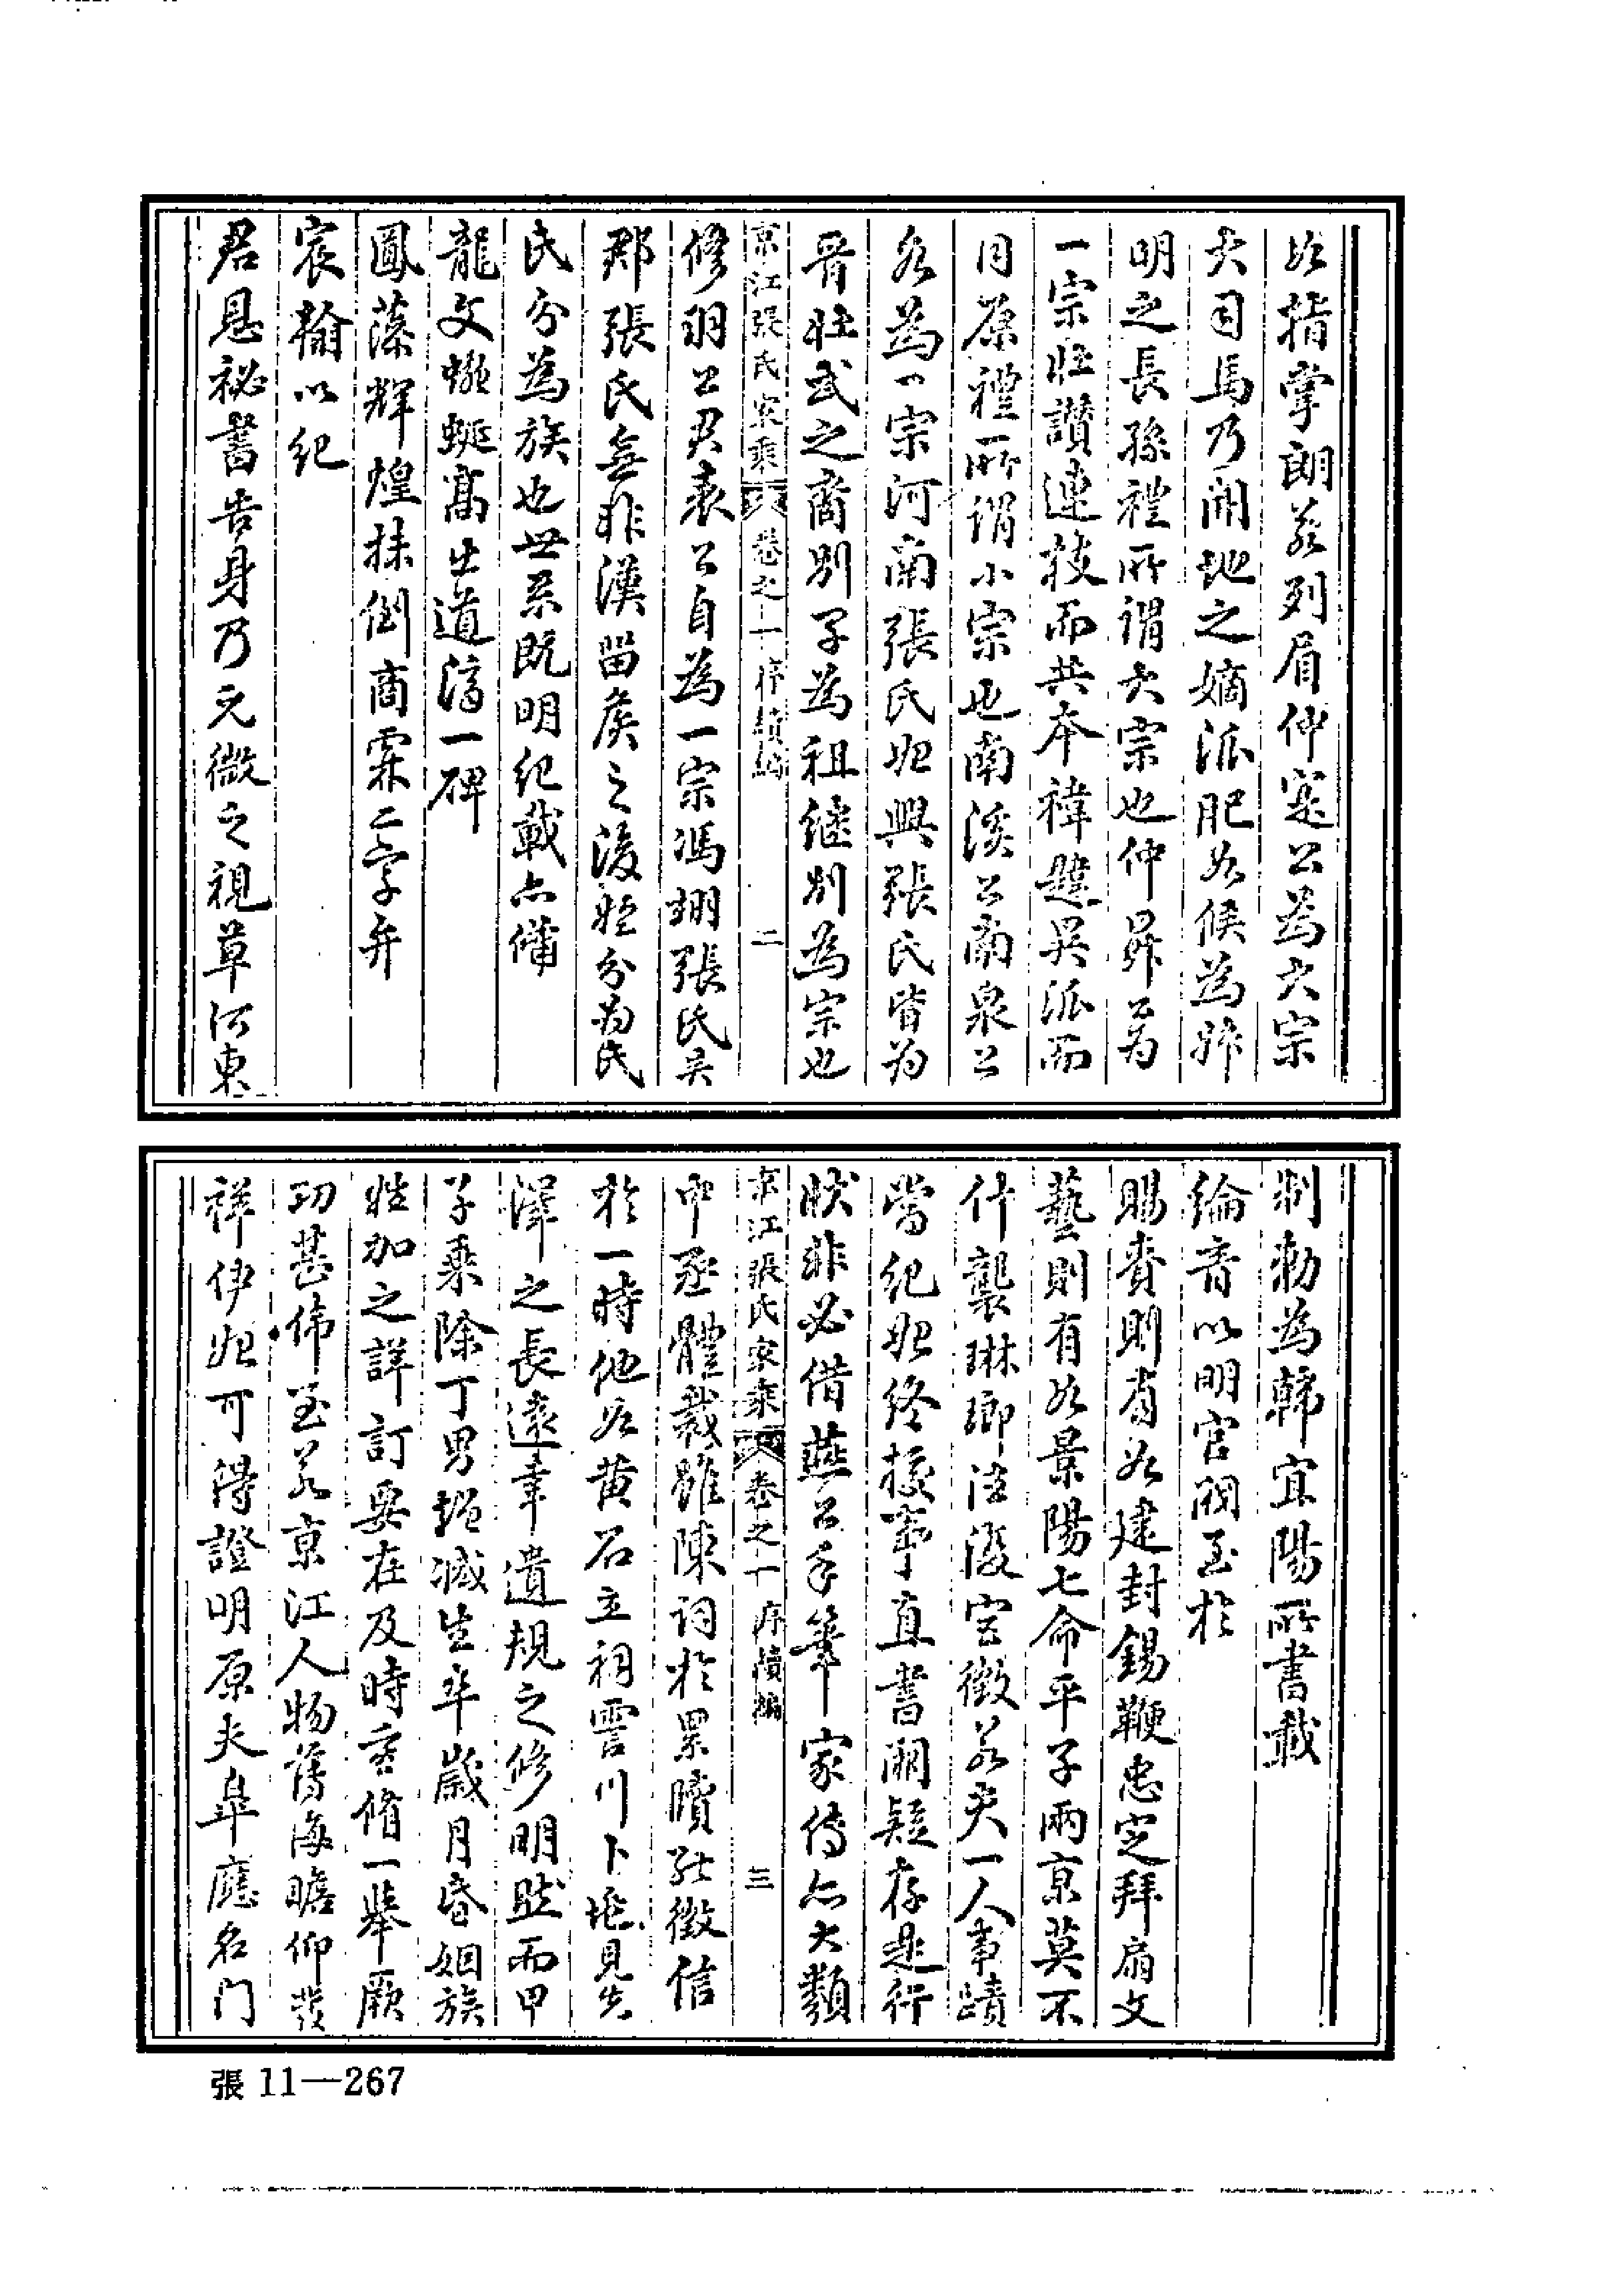 如指掌朗若列眉仲寔公爲大宗
大司馬乃開地之嫡派肥如侯爲胙
明之長孫禮所謂大宗也仲昇公爲
一宗壯讚連枝而共本禕韙異派而
同原禮所謂小宗也南溪公南泉公
各爲一宗河南張氏始興張氏皆爲
晉壯武之裔別子爲祖繼別爲宗也
京江張氏家乘 卷之一 序續編 二
修羽公君表公自爲一宗馮翊張氏吳
郡張氏無非漢留侯之後姓分爲氏
氏分爲族也世系既明紀載亦備
龍文蜿蜒高出道濟一碑
鳳藻輝煌抹倒商霖二字弁
宸翰以紀
君恩祕書告身乃元微之視草河東
制勅爲韓宜陽所書載
綸音以明官閥至於
賜賚則有如建封錫鞭忠定拜扇文
藝則有如景陽七命平子兩京莫不
什襲琳瑯法後宮徵若夫一人事蹟
嘗紀始終按事直書闕疑存是行
狀非必借燕公手筆家傳亦大類
京江張氏家乘 卷之一 序續編 三
中丞體裁雖陳詞於累牘能徵信
於一時他如黃石立祠霅川卜兆見先
澤之長遠韋遺規之修明然而甲
子乘除丁男增減生卒歲月昏姻族
姓加之詳訂要在及時重修一舉厥
功甚偉至若京江人物舊海瞻仰發
祥伊始可得證明原夫皐應名門
張 11—267